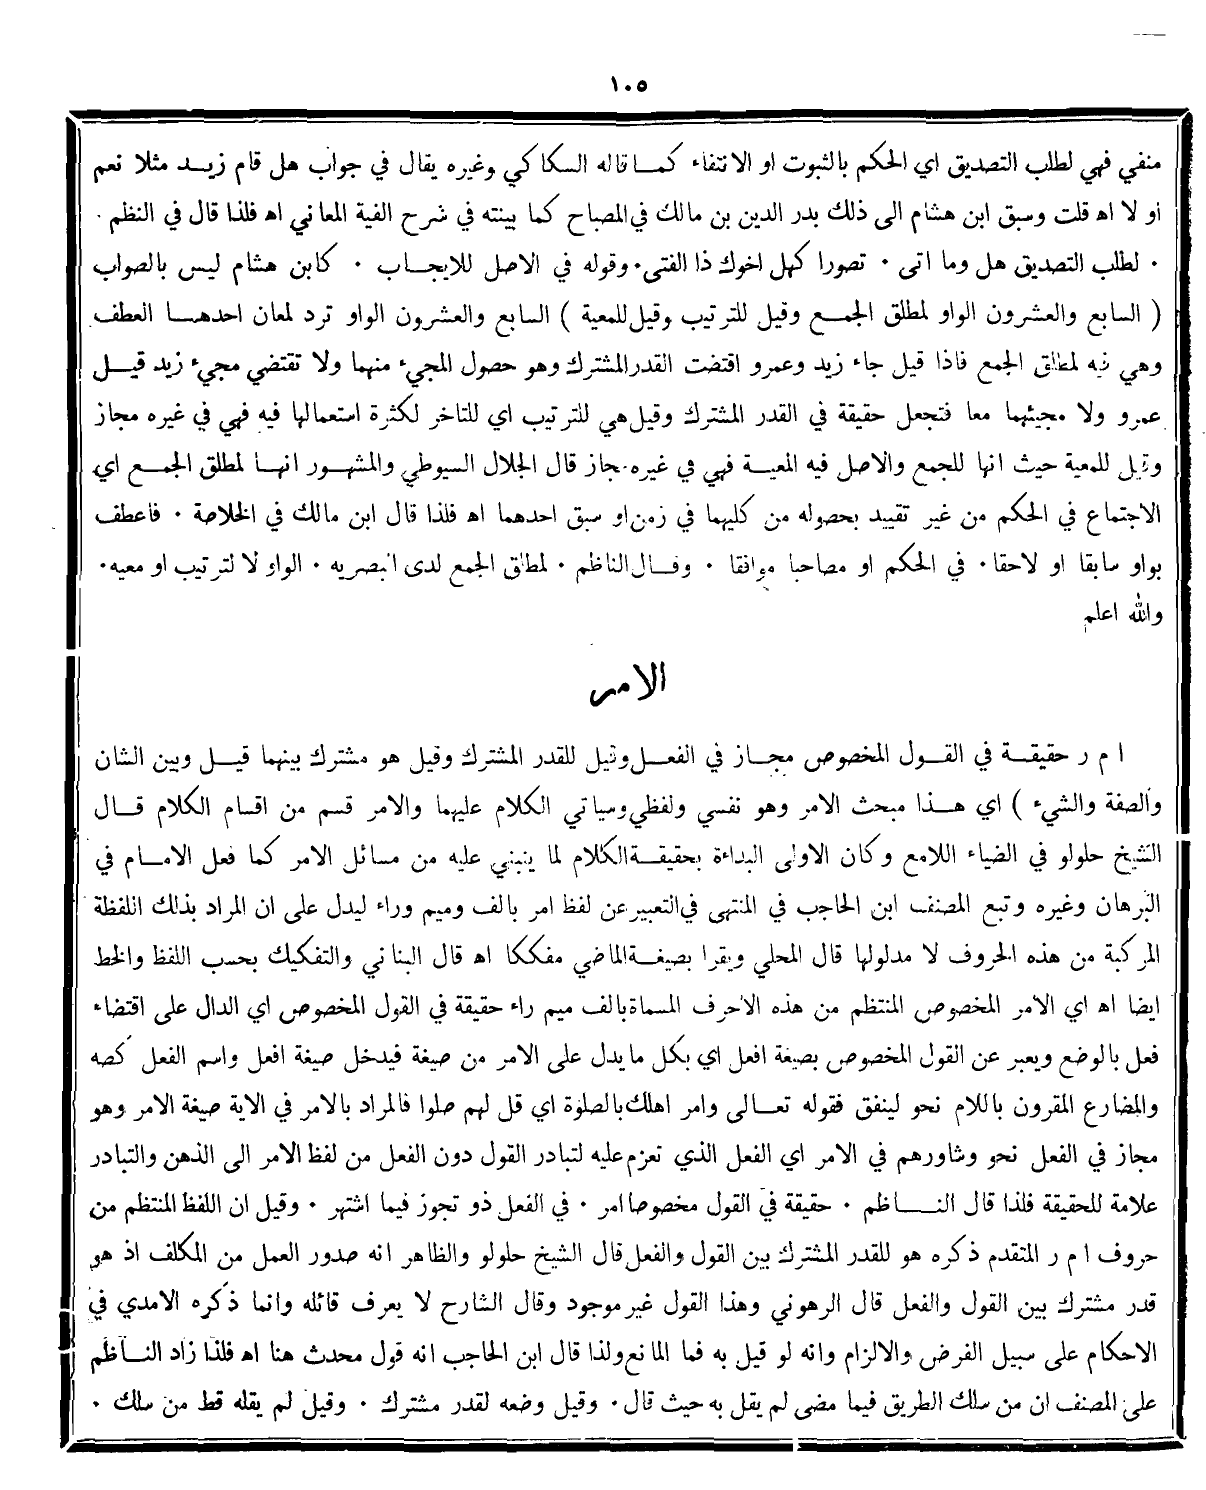 ١٠٥
منفي فهي لطلب التصديق اي الحكم بالثبوت او الانتفاء كما قاله السكاكي وغيره يقال في جواب هل قام زيد مثلا نعم
او لا اه قلت وسبق ابن هشام الى ذلك بدر الدين بن مالك في المصباح كما بينته في شرح الفية المعاني اه فلذا قال في النظم ·
· لطلب التصديق هل وما اتى · تصورا كهل اخوك ذا الفتى · وقوله في الاصل للايجاب · كابن هشام ليس بالصواب
( السابع والعشرون الواو لمطلق الجمع وقيل للترتيب وقيل للمعية ) السابع والعشرون الواو ترد لمعان احدها العطف
وهي فيه لمطلق الجمع فاذا قيل جاء زيد وعمرو اقتضت القدر المشترك وهو حصول المجيء منهما ولا تقتضي مجيء زيد قبل
عمرو ولا مجيئهما معا فتجعل حقيقة في القدر المشترك وقيل هي للترتيب اي للتاخر لكثرة استعمالها فيه فهي في غيره مجاز
وقيل للمعية حيث انها للجمع والاصل فيه المعية فهي في غيره مجاز قال الجلال السيوطي والمشهور انها لمطلق الجمع اي
الاجتماع في الحكم من غير تقييد بحصوله من كليهما في زمن او سبق احدهما اه فلذا قال ابن مالك في الخلاصة · فاعطف
بواو سابقا او لاحقا · في الحكم او مصاحبا موافقا · وقال الناظم · لمطلق الجمع لدى البصريه · الواو لا لترتيب او معيه ·
والله اعلم
الامر
ا م ر حقيقة في القول المخصوص مجاز في الفعل وقيل للقدر المشترك وقيل هو مشترك بينهما قيل وبين الشان
والصفة والشيء ) اي هذا مبحث الامر وهو نفسي ولفظي وسياتي الكلام عليهما والامر قسم من اقسام الكلام قال
الشيخ حلولو في الضياء اللامع وكان الاولى البداءة بحقيقة الكلام لما ينبني عليه من مسائل الامر كما فعل الامام في
البرهان وغيره وتبع المصنف ابن الحاجب في المنتهى في التعبير عن لفظ امر بالف وميم وراء ليدل على ان المراد بذلك اللفظة
المركبة من هذه الحروف لا مدلولها قال المحلي ويقرا بصيغة الماضي مفككا اه قال البناني والتفكيك بحسب اللفظ والخط
ايضا اه اي الامر المخصوص المنتظم من هذه الاحرف المسماة بالف ميم راء حقيقة في القول المخصوص اي الدال على اقتضاء
فعل بالوضع ويعبر عن القول المخصوص بصيغة افعل اي بكل ما يدل على الامر من صيغة فيدخل صيغة افعل واسم الفعل كصه
والمضارع المقرون باللام نحو لينفق فقوله تعالى وامر اهلك بالصلوة اي قل لهم صلوا فالمراد بالامر في الاية صيغة الامر وهو
مجاز في الفعل نحو وشاورهم في الامر اي الفعل الذي تعزم عليه لتبادر القول دون الفعل من لفظ الامر الى الذهن والتبادر
علامة للحقيقة فلذا قال الناظم · حقيقة في القول مخصوصا امر · في الفعل ذو تجوز فيما اشتهر · وقيل ان اللفظ المنتظم من
حروف ا م ر المتقدم ذكره هو للقدر المشترك بين القول والفعل قال الشيخ حلولو والظاهر انه صدور العمل من المكلف اذ هو
قدر مشترك بين القول والفعل قال الرهوني وهذا القول غير موجود وقال الشارح لا يعرف قائله وانما ذكره الامدي في
الاحكام على سبيل الفرض والالزام وانه لو قيل به فما المانع ولذا قال ابن الحاجب انه قول محدث هنا اه فلذا زاد الناظم
على المصنف ان من سلك الطريق فيما مضى لم يقل به حيث قال · وقيل وضعه لقدر مشترك · وقيل لم يقله قط من سلك ·